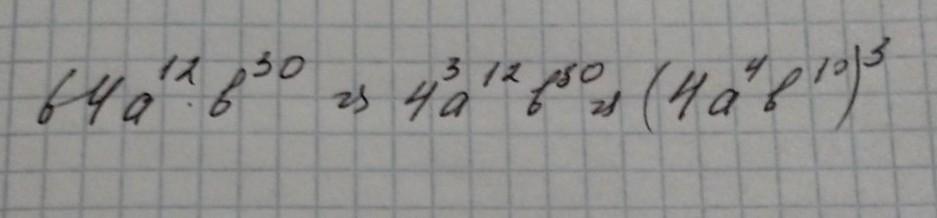 64a¹² · b³⁰ = 4³a¹²b³⁰ = (4a⁴b¹⁰)³